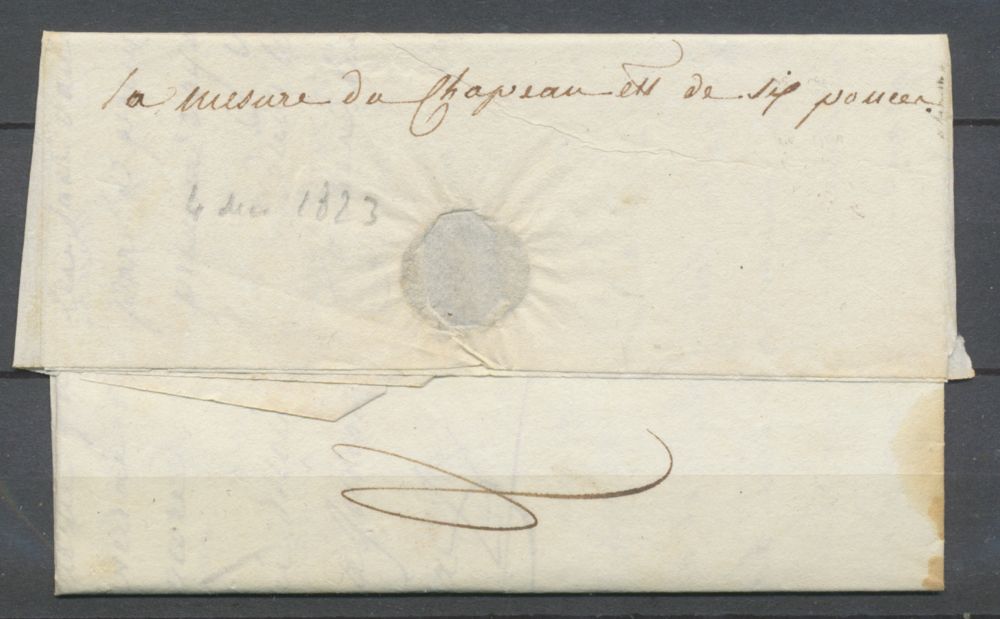 la mesure du Chapeau est de six pouces
4 dec 1823